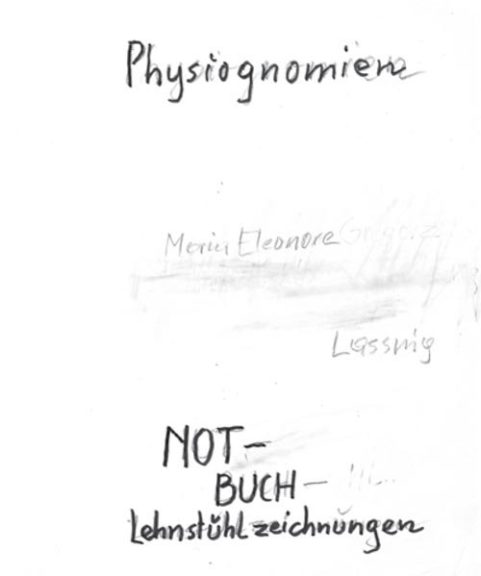 Physiognomien
Maria Eleonore
Lassnig
NOT-
BUCH-
Lehnstŭhlzeichnŭngen